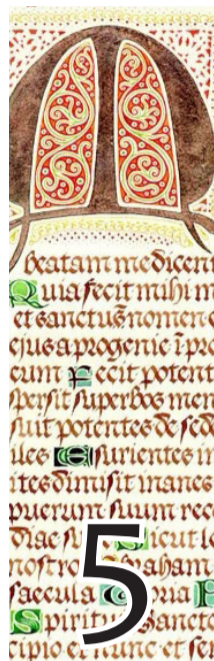 M
beatam me dicent
Quia fecit mihi m
et sanctu̅ nomen e
ejus a progenie i̅ pro
eum Fecit potent
spersit superbos men
suit potentes de sed
les Esurientes im
ites dimisit inanes
puerum suum rec
diae su Sicut lo
nostro
saecula Gloria P
Spiritu Sancto
cipio et nunc et sem
5